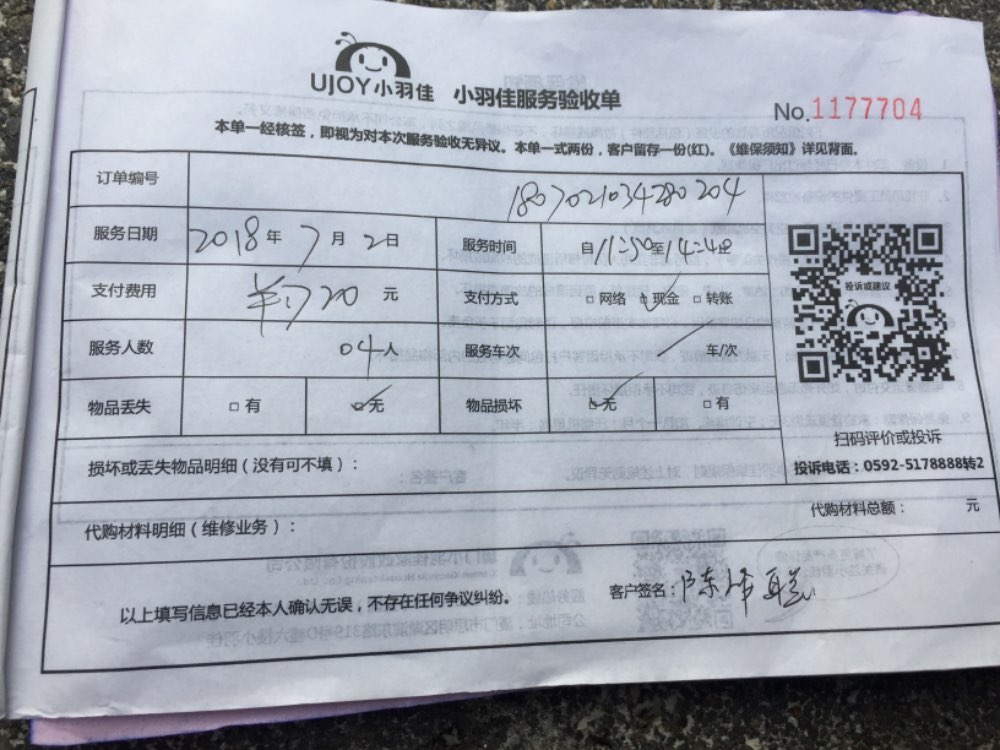 UJOY小羽佳 小羽佳服务验收单
No.1177704
本单一经核签，即视为对本次服务验收无异议。本单一式两份，客户留存一份(红)。《维保须知》详见背面。
订单编号 1807021034280204
服务日期 2018年7月2日 服务时间 自11:50至14:48
支付费用 720元 支付方式 □网络 □现金 □转账
投诉或建议
服务人数 04人 服务车次 车/次
物品丢失 □有 □无 物品损坏 □无 □有
扫码评价或投诉
损坏或丢失物品明细(没有可不填)：
投诉电话：0592-5178888转2
代购材料总额： 元
代购材料明细(维修业务)：
以上填写信息已经本人确认无误，不存在任何争议纠纷。
客户签名：陈